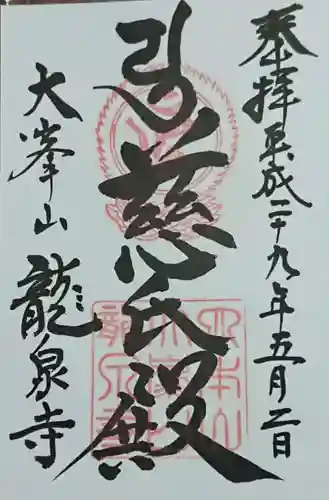 奉拝 平成二十九年五月二日
慈氏殿
大峯山 龍泉寺